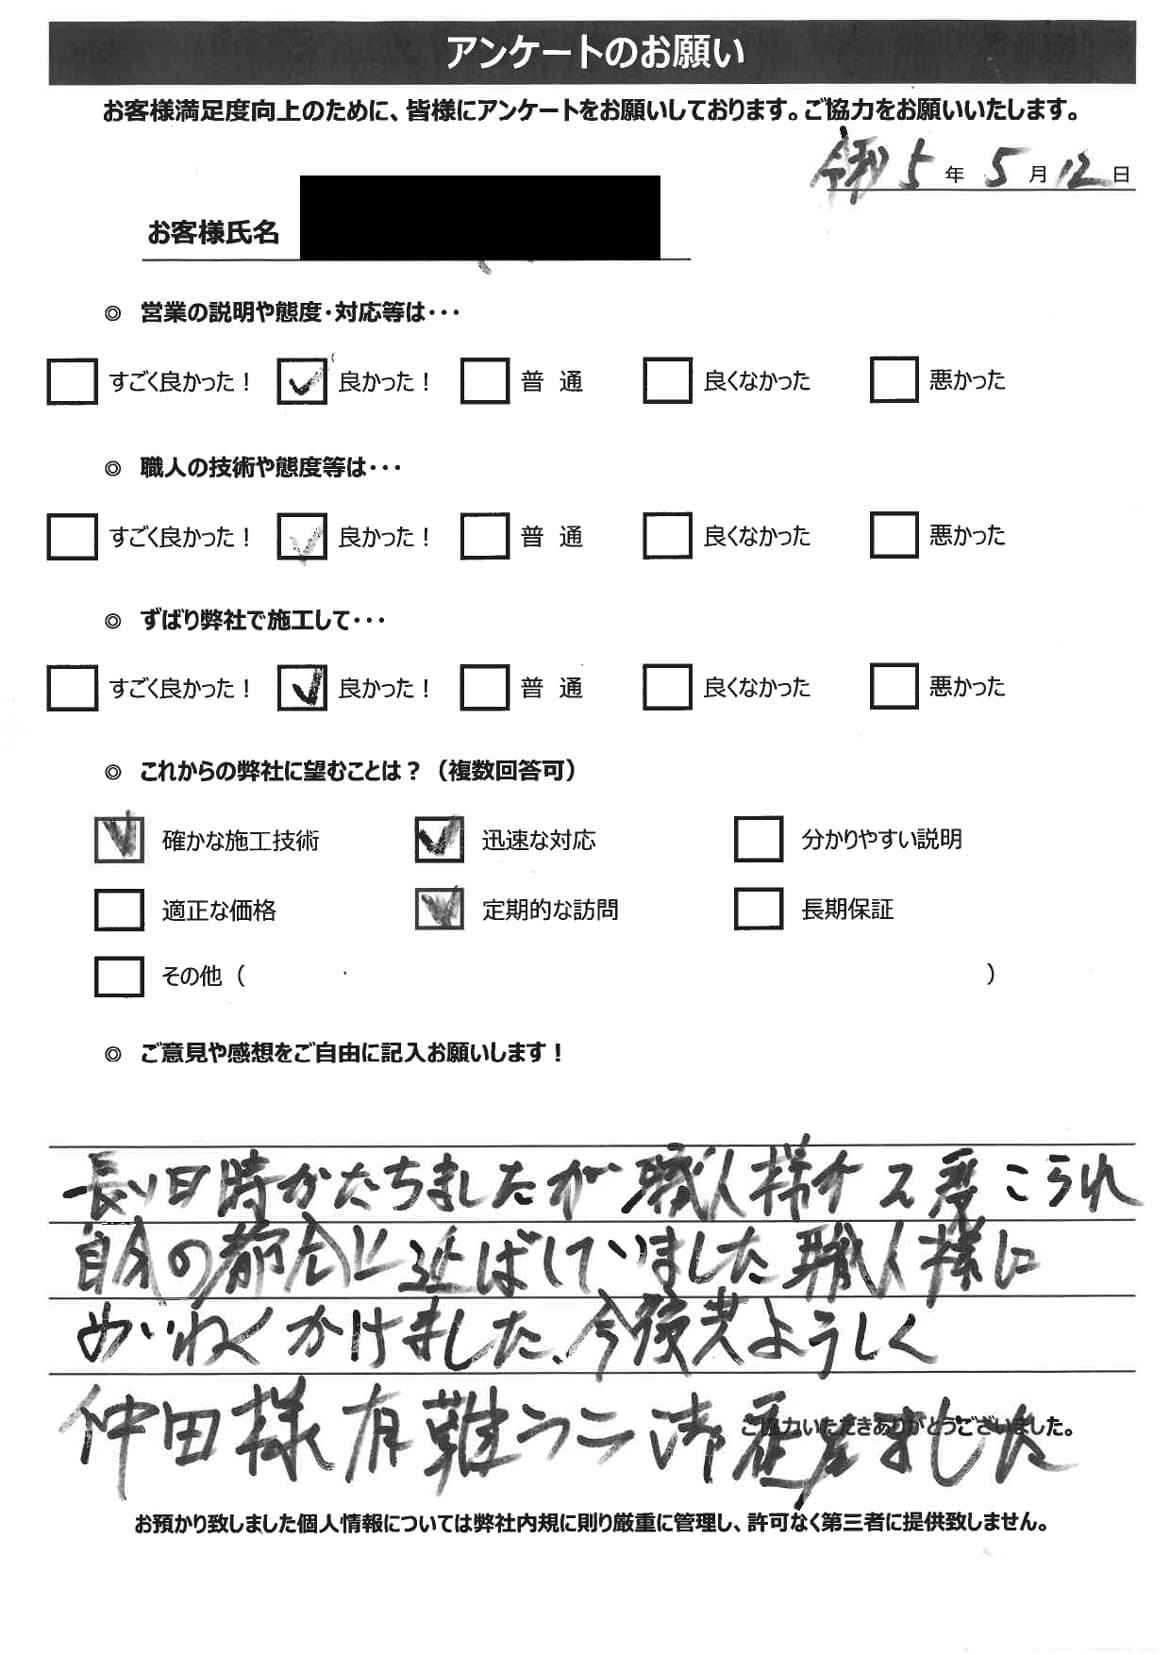 アンケートのお願い
お客様満足度向上のために、皆様にアンケートをお願いしております。ご協力をお願いいたします。
令和5年5月12日
お客様氏名
◎ 営業の説明や態度・対応等は・・・
すごく良かった！ 良かった！ 普 通 良くなかった 悪かった
◎ 職人の技術や態度等は・・・
すごく良かった！ 良かった！ 普 通 良くなかった 悪かった
◎ ずばり弊社で施工して・・・
すごく良かった！ 良かった！ 普 通 良くなかった 悪かった
◎ これからの弊社に望むことは？（複数回答可）
確かな施工技術 迅速な対応 分かりやすい説明
適正な価格 定期的な訪問 長期保証
その他（ ）
◎ ご意見や感想をご自由に記入お願いします！
長い日時かたちましたが職人様
自分の都合で延ばしていました職人様に
めいわくかけました、今後共よろしく
仲田様有難うご御座ました
ご協力いただきありがとうございました。
お預かり致しました個人情報については弊社内規に則り厳重に管理し、許可なく第三者に提供致しません。